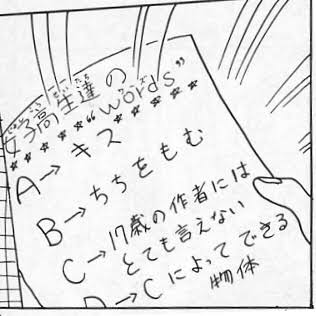 女子高生達の
"words"
A→キス
B→ちちをもむ
C→17歳の作者には
とても言えない
D→Cによってできる
物体